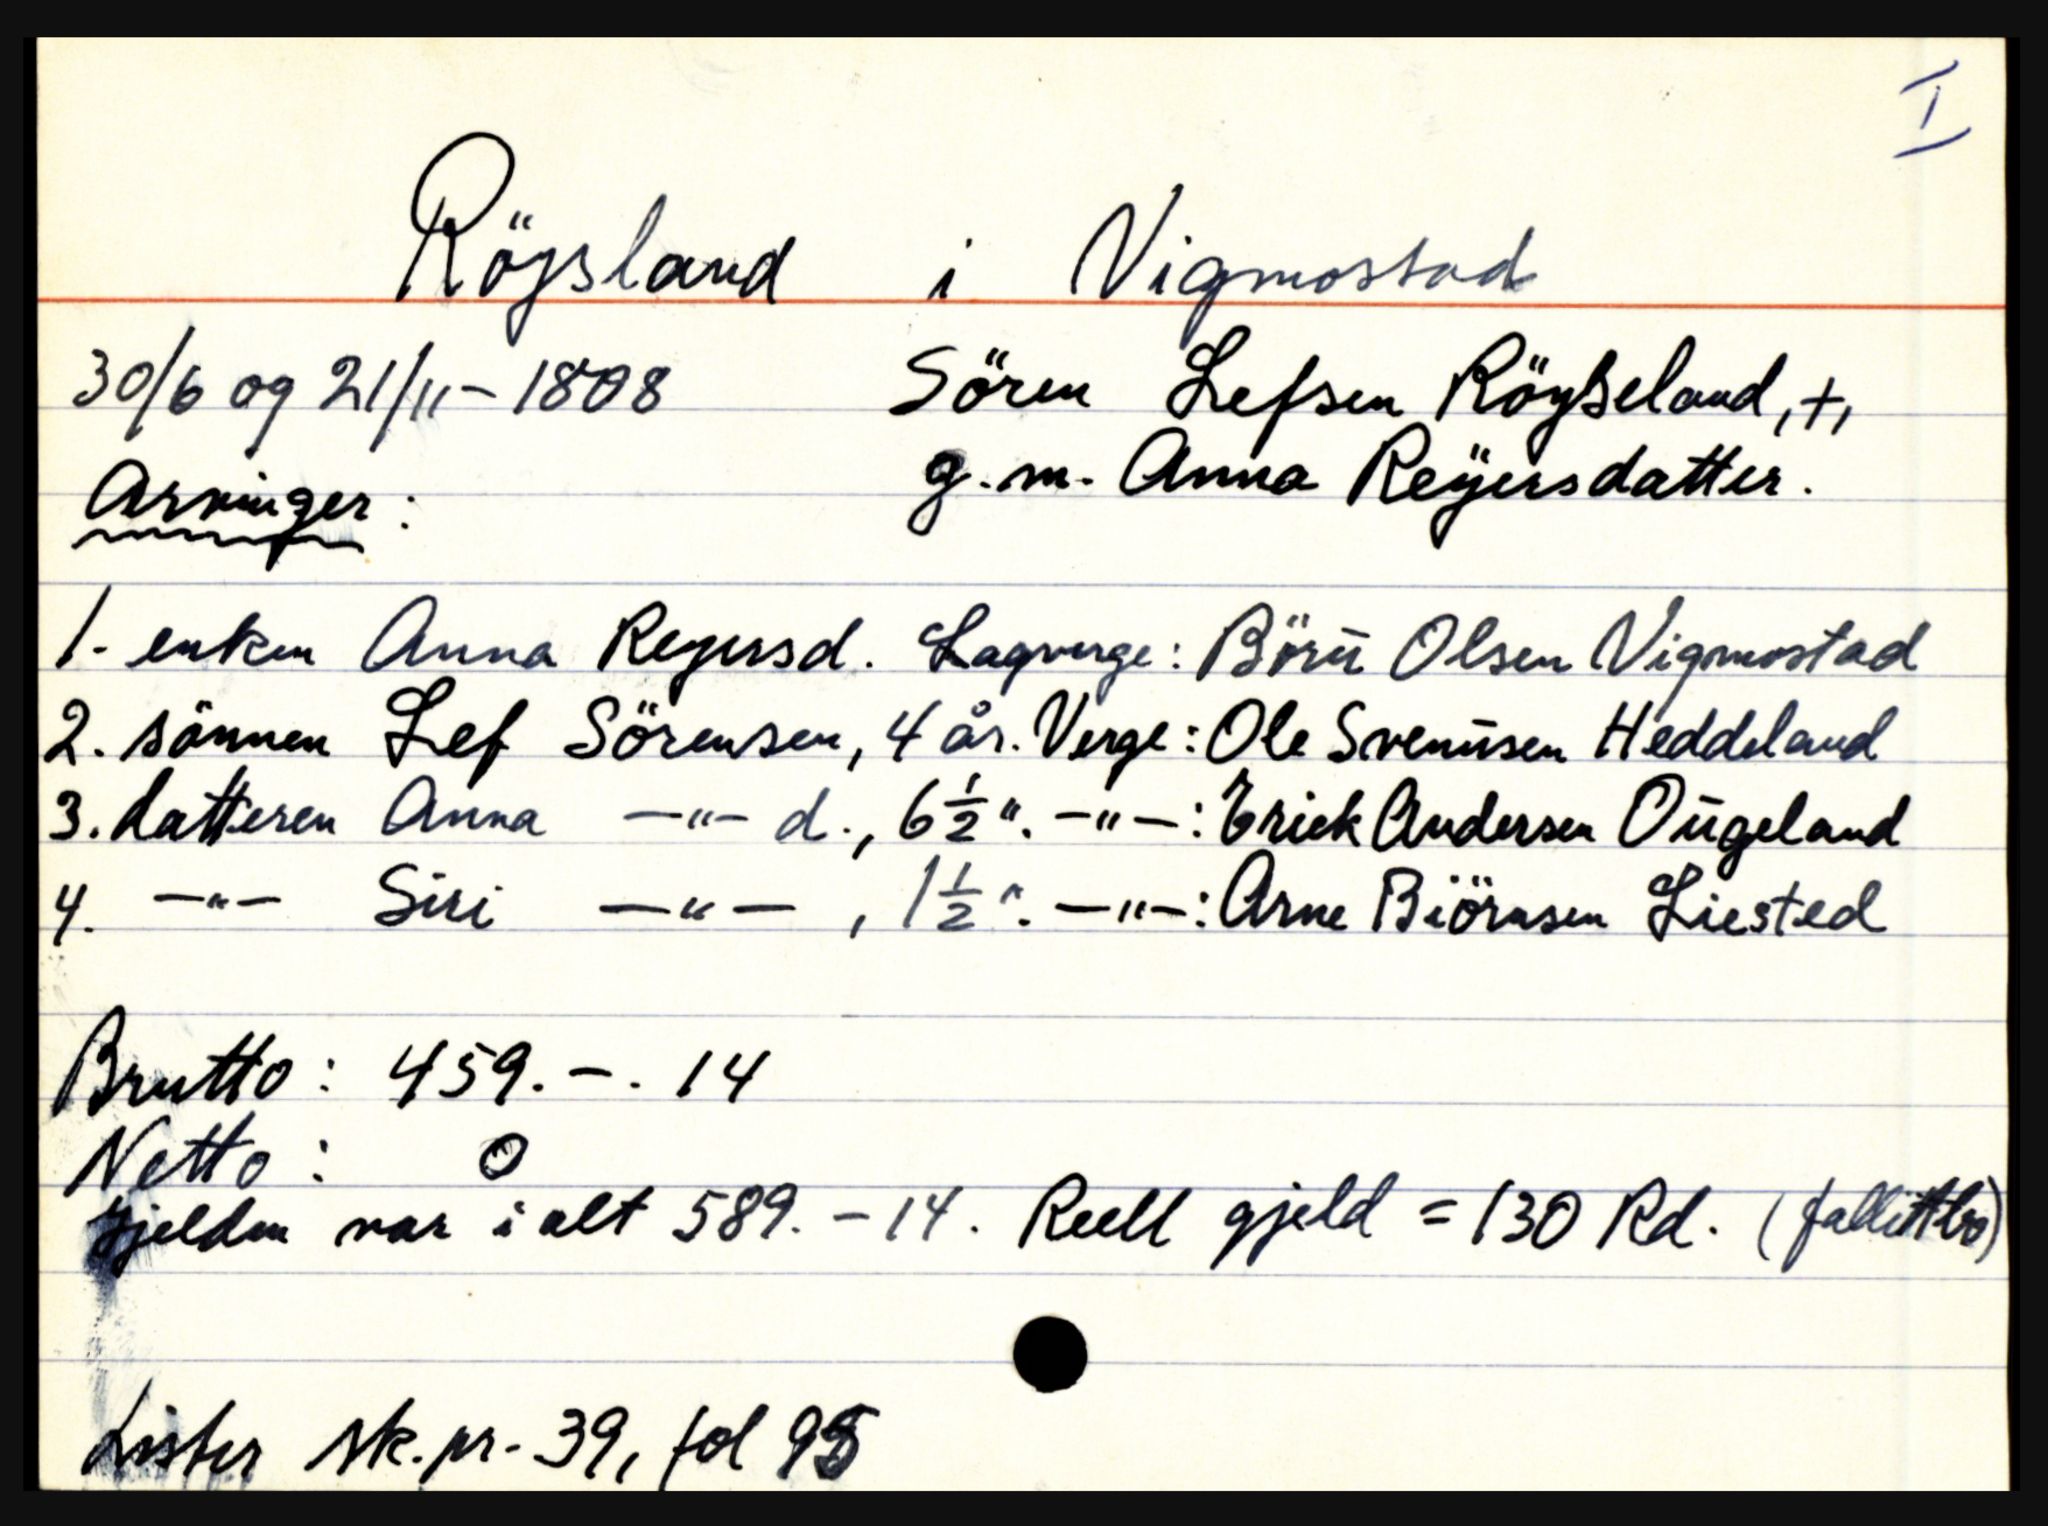 I
Röysland i Vigmostad
30/6 og 21/11 - 1808 Sören Lefsen Röyseland, +,
Arvinger: g. m. Anna Reÿersdatter.
1. enken Anna Reyersd. Lagverge: Börü Olsen Vigmostad
2. sönnen Lef Sörensen, 4 år. Verge: Ole Svenüsen Heddeland
3. datteren Anna —"— d., 6 1/2 ". —"—: Erick Andersen Oügeland
4. —"— Siri —"—, 1 1/2 ". —"—: Arne Biörnsen Liested
Brutto: 459. -. 14
Netto: 0
Gjelden var i alt 589. - 14. Reell gjeld = 130 Rd. (fallittbo)
Lister sk.pr. 39, fol 95